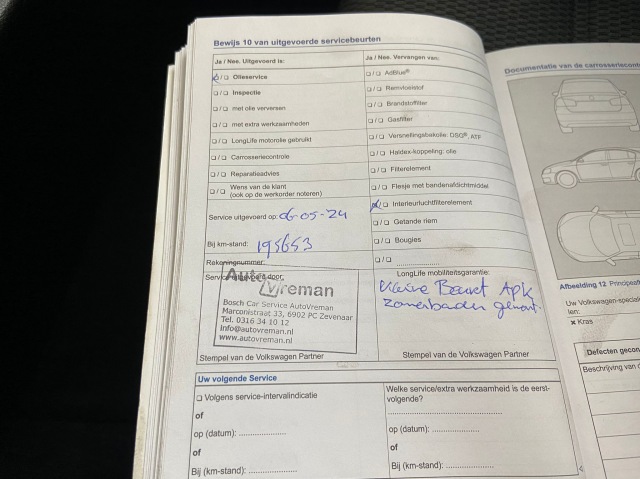 Bewijs 10 van uitgevoerde servicebeurten
Ja / Nee. Uitgevoerd is:
❏ / ❏ Olieservice
❏ / ❏ Inspectie
❏ / ❏ met olie verversen
❏ / ❏ met extra werkzaamheden
❏ / ❏ LongLife motorolie gebruikt
❏ / ❏ Carrosseriecontrole
❏ / ❏ Reparatieadvies
❏ / ❏ Wens van de klant
(ook op de werkorder noteren)
Service uitgevoerd op: 06-05-24
Bij km-stand: 195653
Rekeningnummer:
Service uitgevoerd door:
AutoVreman
Bosch Car Service AutoVreman
Marconistraat 33, 6902 PC Zevenaar
Tel. 0316 34 10 12
info@autovreman.nl
www.autovreman.nl
Stempel van de Volkswagen Partner
Ja / Nee. Vervangen van:
❏ / ❏ AdBlue®
❏ / ❏ Remvloeistof
❏ / ❏ Brandstoffilter
❏ / ❏ Gasfilter
❏ / ❏ Versnellingsbakolie: DSG®, ATF
❏ / ❏ Haldex-koppeling: olie
❏ / ❏ Filterelement
❏ / ❏ Flesje met bandenafdichtmiddel
❏ / ❏ Interieurluchtfilterelement
❏ / ❏ Getande riem
❏ / ❏ Bougies
❏ / ❏ ....................
LongLife mobiliteitsgarantie:
Kleine Beurt Apk
zomerbanden
Stempel van de Volkswagen Partner
Uw volgende Service
❏ Volgens service-intervalindicatie
of
op (datum): ....................
of
Bij (km-stand): ....................
Welke service/extra werkzaamheid is de eerst-
volgende?
op (datum): ....................
of
Bij (km-stand): ....................
Documentatie van de carrosseriecont
Afbeelding 12
Uw Volkswagen-special
len:
× Kras
Defecten gecon
Beschrijving van d